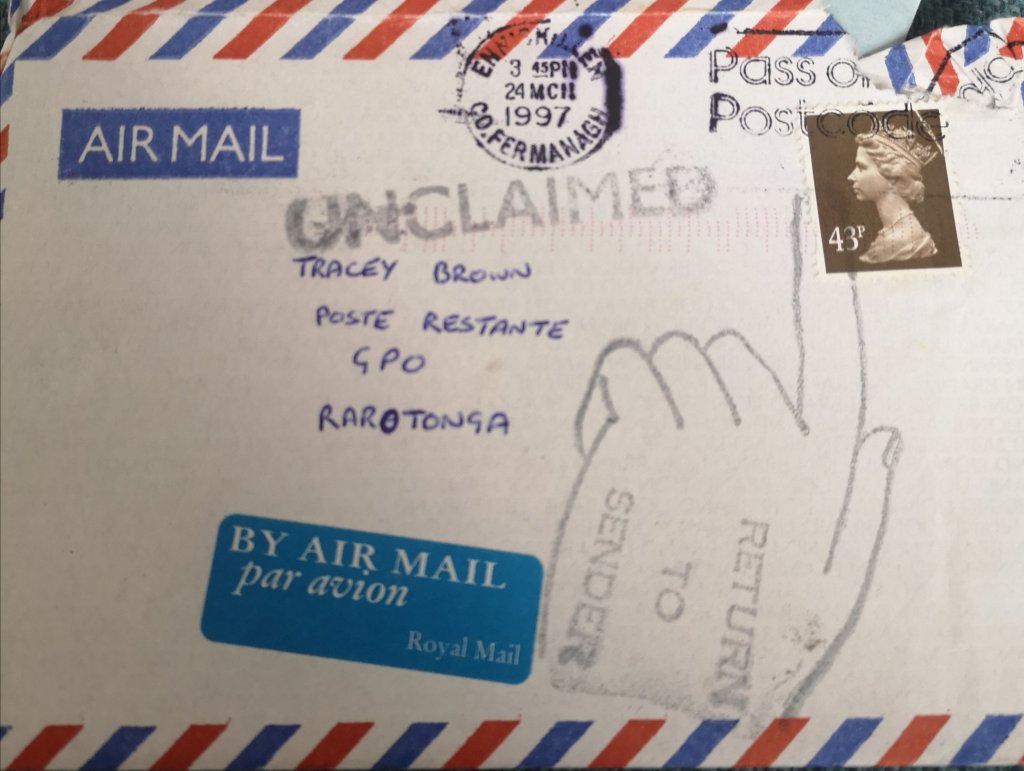 ENNISKILLEN
3 45PM
24 MCH
1997
CO.FERMANAGH
Pass on
Postcode
AIR MAIL
43P
UNCLAIMED
TRACEY BROWN
POSTE RESTANTE
GPO
RAROTONGA
RETURN
TO
SENDER
BY AIR MAIL
par avion
Royal Mail